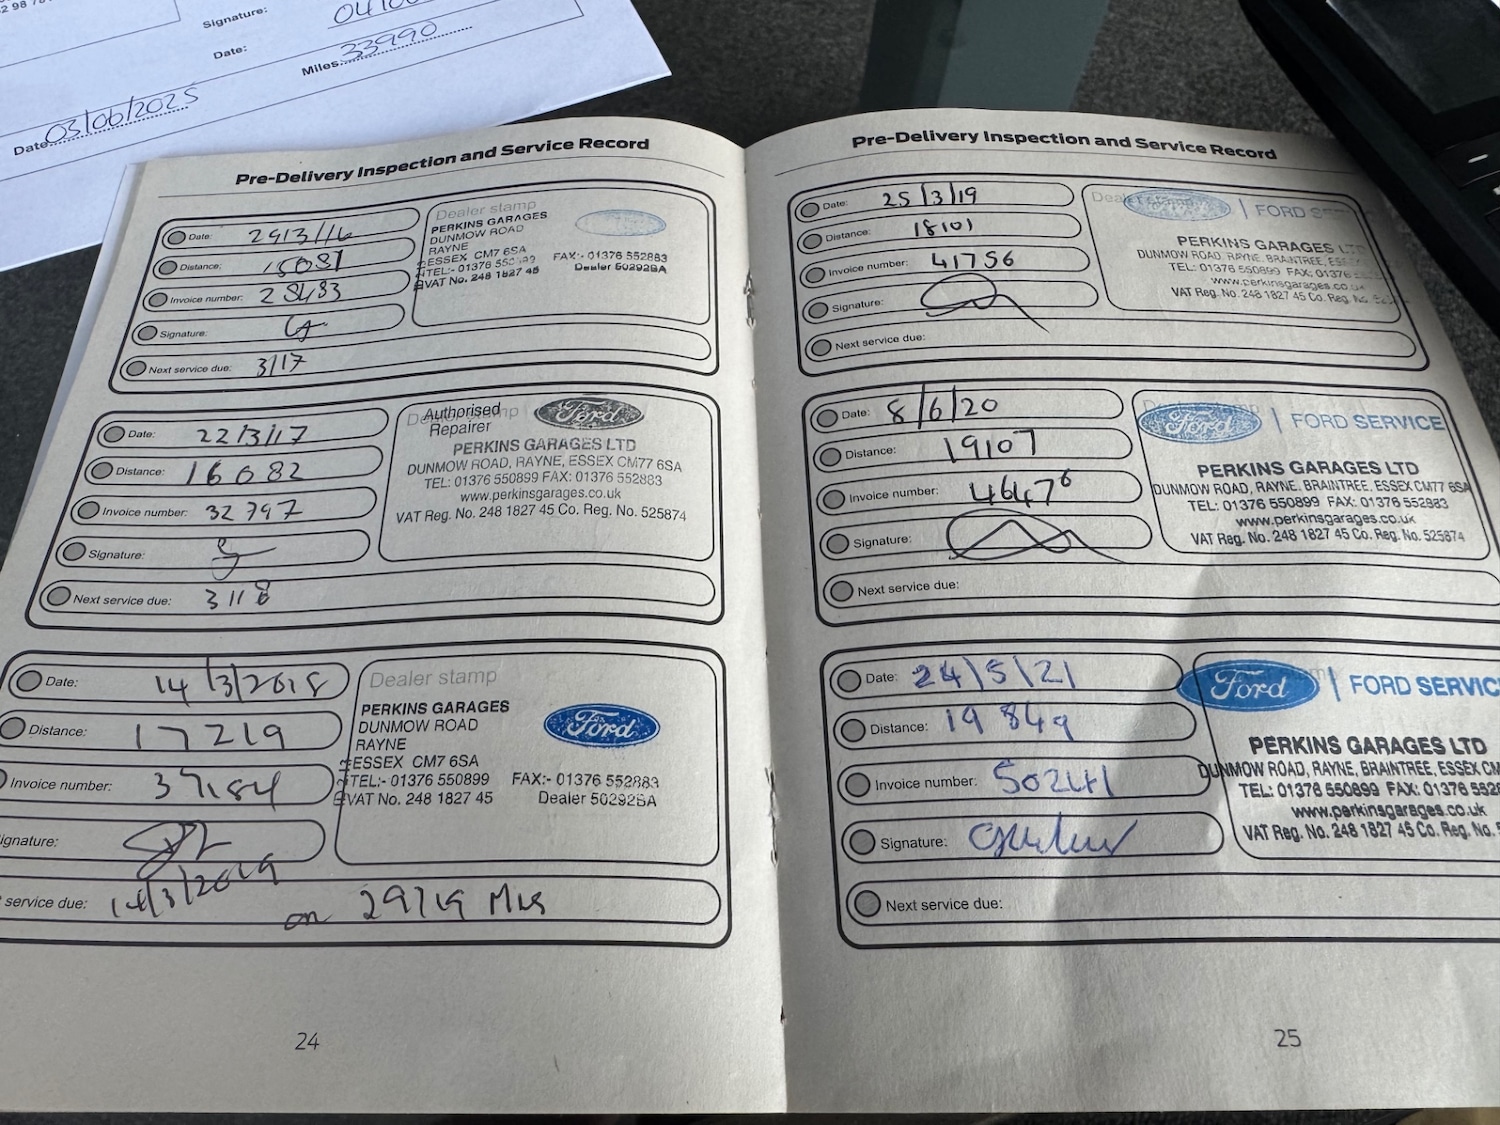 Signature:
Date:
Miles 33990
Date 03/06/2025
Pre-Delivery Inspection and Service Record
Date: 29/3/16
Distance: 15081
Invoice number: 28483
Signature:
Next service due: 3/17
Dealer stamp
PERKINS GARAGES
DUNMOW ROAD
RAYNE
ESSEX CM7 6SA
TEL:- 01376 FAX:- 01376 552883
VAT No. 248 1827 45 Dealer 50292BA
Date: 22/3/17
Distance: 16082
Invoice number: 32797
Signature:
Next service due: 3/18
Authorised
Repairer
Ford
PERKINS GARAGES LTD
DUNMOW ROAD, RAYNE, ESSEX CM77 6SA
TEL: 01376 550899 FAX: 01376 552883
www.perkinsgarages.co.uk
VAT Reg. No. 248 1827 45 Co. Reg. No. 525874
Date: 14/3/2018
Distance: 17219
Invoice number: 37184
ignature:
service due: 14/3/2019 on 29719 Mls
Dealer stamp
PERKINS GARAGES
DUNMOW ROAD
RAYNE
ESSEX CM7 6SA
TEL:- 01376 550899 FAX:- 01376 552883
VAT No. 248 1827 45 Dealer 50292BA
Ford
24
Pre-Delivery Inspection and Service Record
Date: 25/3/19
Distance: 18101
Invoice number: 41756
Signature:
Next service due:
FORD
PERKINS GARAGES
DUNMOW ROAD, RAYNE, BRAINTREE,
TEL: 01376 550899 FAX: 01376
www.perkinsgarages.co.uk
VAT Reg. No. 248 1827 45 Co. Reg.
Date: 8/6/20
Distance: 19107
Invoice number: 46476
Signature:
Next service due:
Ford | FORD SERVICE
PERKINS GARAGES LTD
DUNMOW ROAD, RAYNE, BRAINTREE, ESSEX CM77 6SA
TEL: 01376 550899 FAX: 01376 552883
www.perkinsgarages.co.uk
VAT Reg. No. 248 1827 45 Co. Reg. No. 525874
Date: 24/5/21
Distance: 19849
Invoice number: 50241
Signature:
Next service due:
Ford | FORD SERVIC
PERKINS GARAGES LTD
DUNMOW ROAD, RAYNE, BRAINTREE, ESSEX CM
TEL: 01376 550899 FAX: 01376 552
www.perkinsgarages.co.uk
VAT Reg. No. 248 1827 45 Co. Reg. No.
25